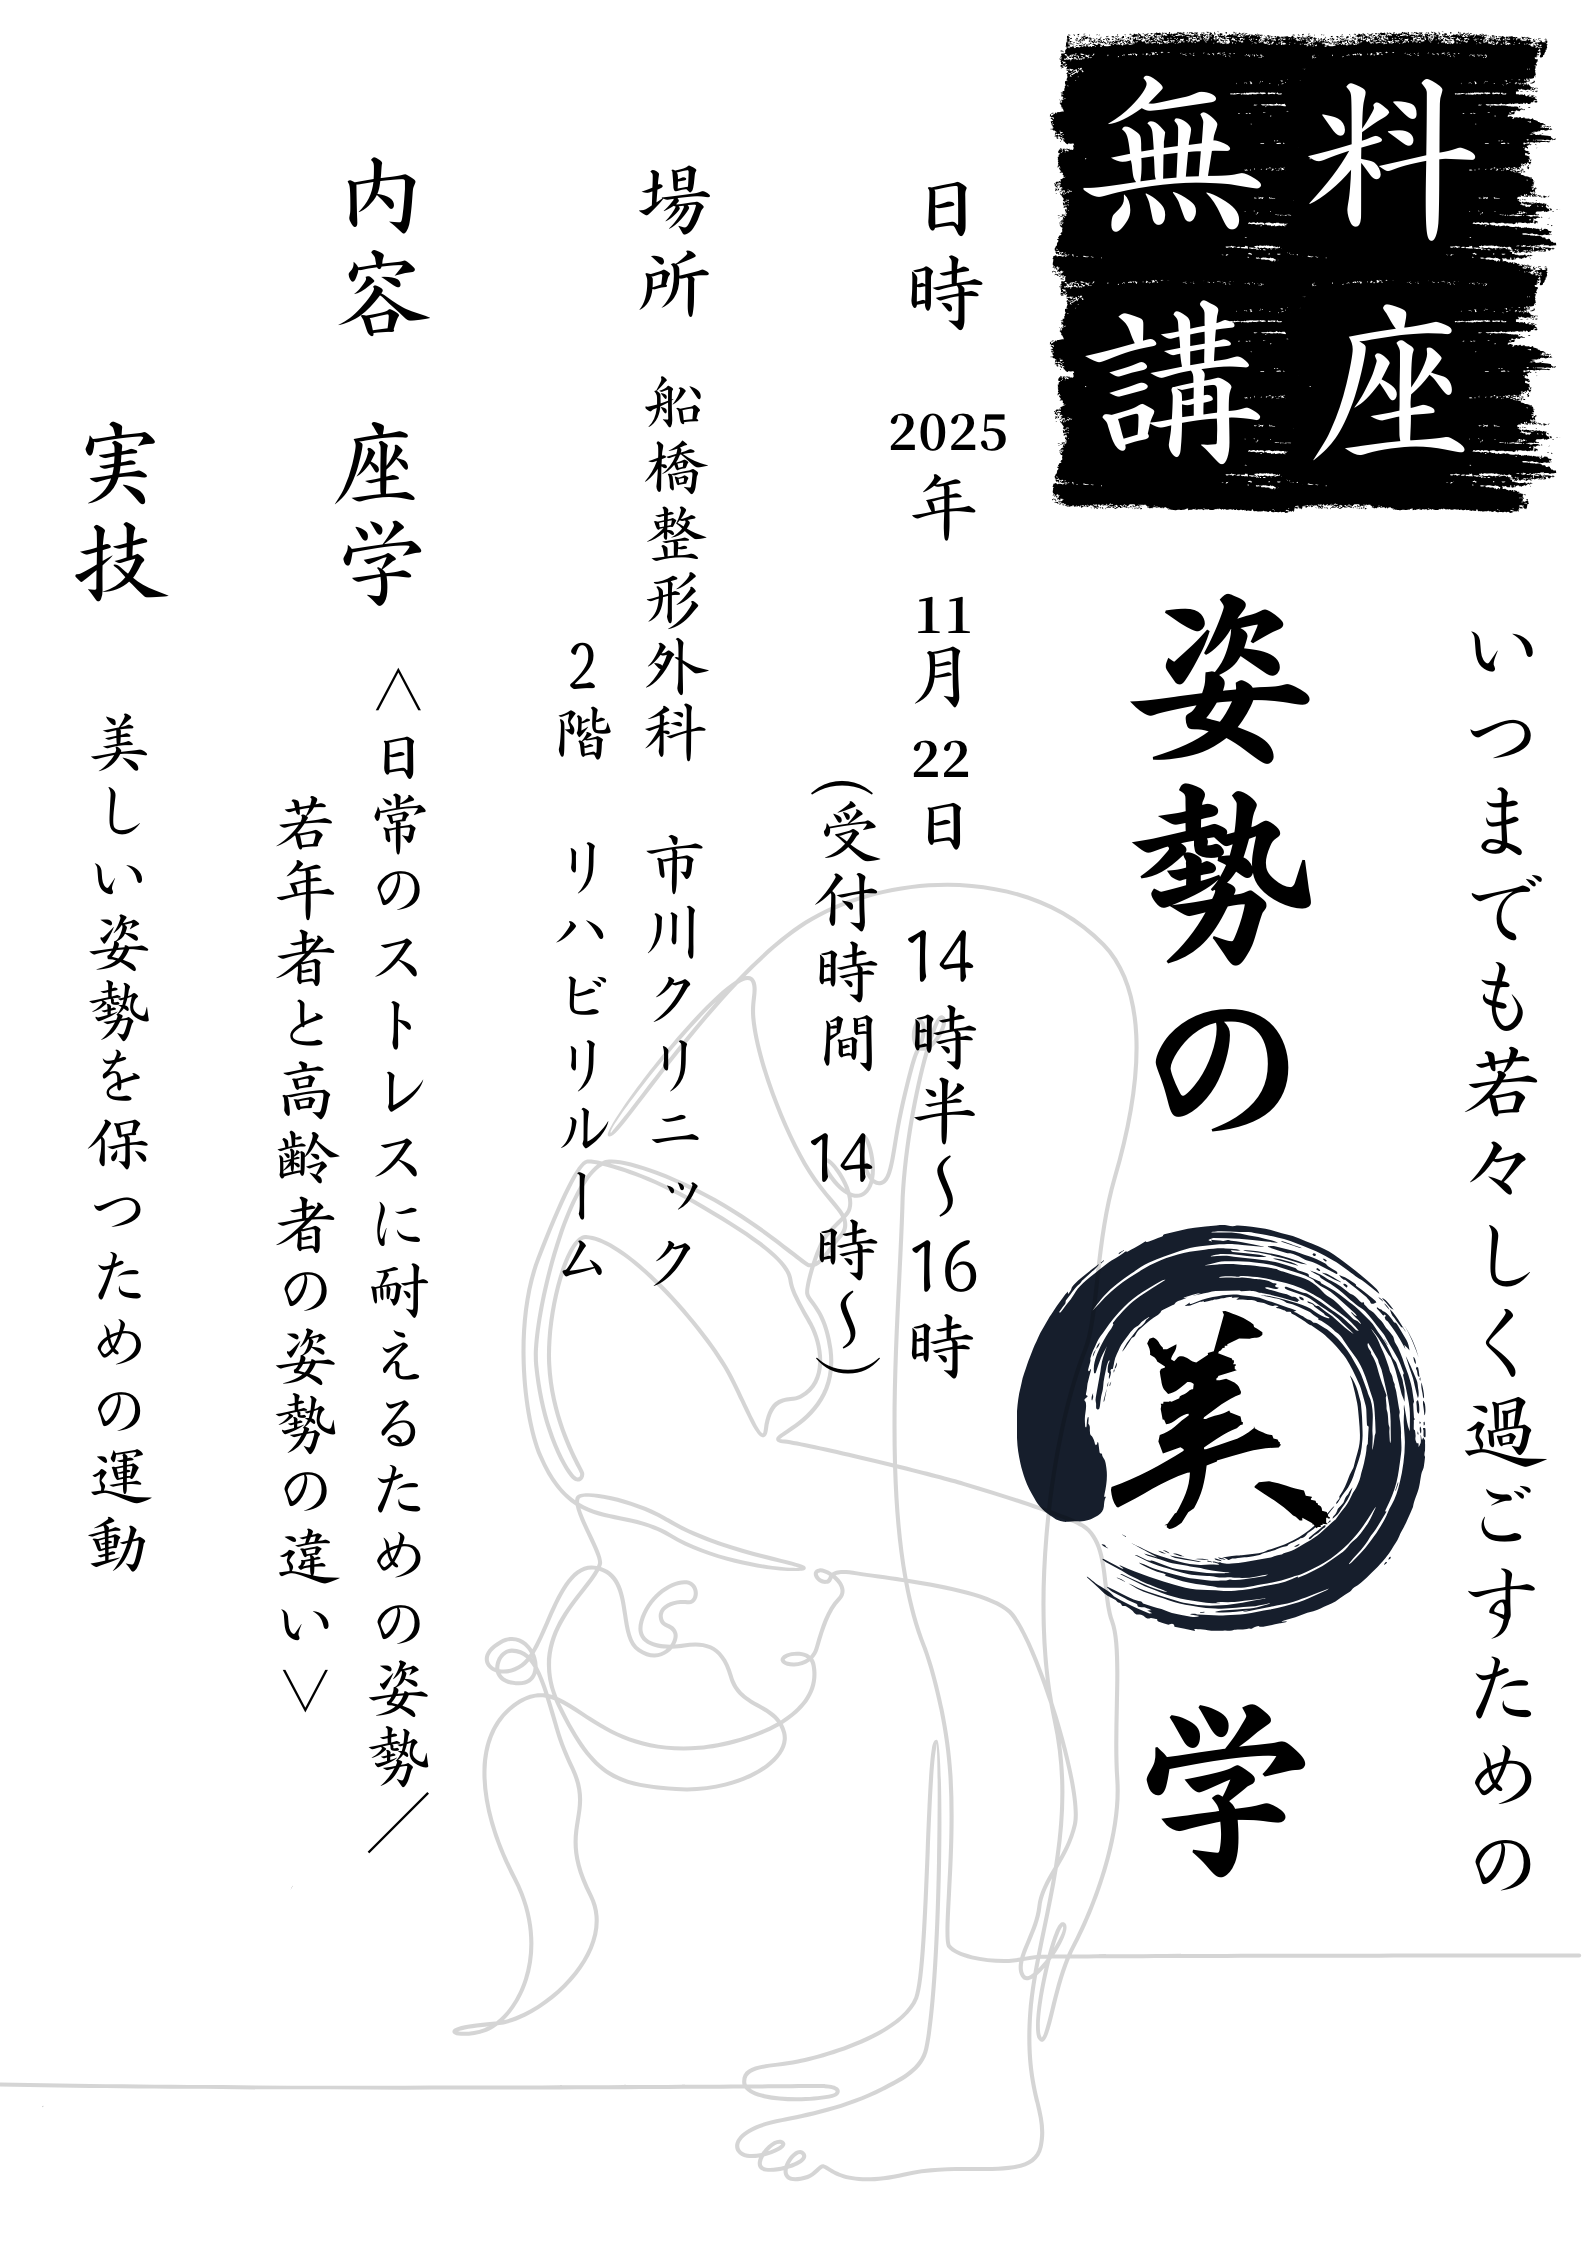 無料
講座
いつまでも若々しく過ごすための
姿勢の美学
日時 2025年 11月22日 14時半〜16時
（受付時間 14時〜）
場所 船橋整形外科 市川クリニック
2階 リハビリルーム
内容 座学 〈日常のストレスに耐えるための姿勢／
若年者と高齢者の姿勢の違い〉
実技 美しい姿勢を保つための運動